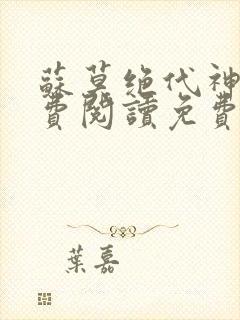 蘇莫绝代神
費閱讀免費
葉嘉